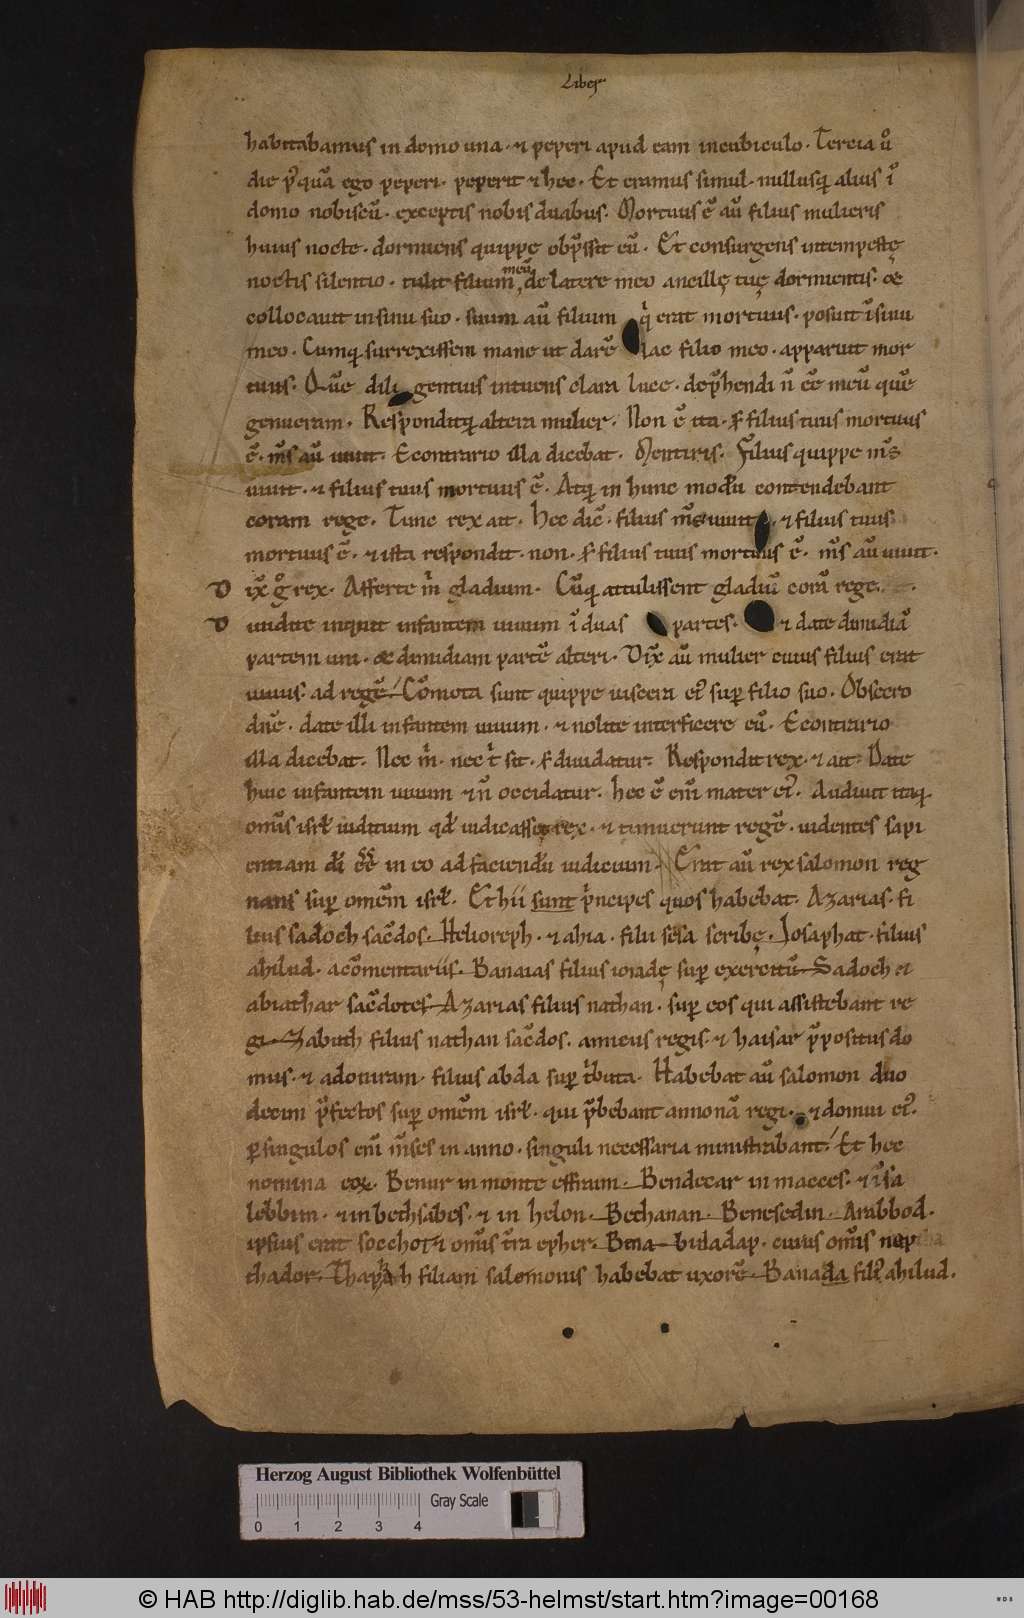 Liber
habitabamus in domo una · ⁊ peperi apud eam in cubiculo · Tercia u͛o
die p̄ quā ego peperi · peperit ⁊ hec · Et eramus simul · nullusq; alius ī
domo nobiscū · exceptis nobis duabus · Mortuus ē aū filius mulieris
huius nocte · dormiens quippe obp̄ssit eū · Et consurgens intempestę
noctis silentio · tulit filium meū de latere meo ancillę tuę dormientis · &
collocauit in sinu suo · suum aū filium qͥ erat mortuus · posuit ī sinu
meo · Cumq; surrexissem mane ut darē lac filio meo · apparuit mor
tuus · Quē diligentius intuens clara luce · dep̄hendi n̄ eē meū quē
genueram · Responditq; altera mulier · Non ē ita · s; filius tuus mortuus
ē · m̄s aū uiuit · Econtrario illa dicebat · Mentiris · Filius quippe m̄s
uiuit · ⁊ filius tuus mortuus ē · Atq; in hunc modū contendebant
coram rege · Tunc rex ait · Hec dic̄ · filius m̄s uiuit · ⁊ filius tuus
mortuus ē · ⁊ ista respondit · non · s; filius tuus mortuus ē · m̄s aū uiuit ·
D ix̄ gͦ rex · Afferte m̄ gladium · Cūq; attulissent gladiū corā rege
D iuidite inquit infantem uiuum ī duas partes · ⁊ date dimidiā
partem uni · & dimidiam partē alteri · Dix̄ aū mulier cuius filius erat
uiuus · ad regē · Cōmota sunt quippe uiscera ei᷒ suꝑ filio suo · Obsecro
dn̄e · date illi infantem uiuum · ⁊ nolite interficere eū · Econtrario
illa dicebat · Nec m̄ · nec tͥ sit · s; diuidatur · Respondit rex · ⁊ ait · Date
huic infantem uiuum ⁊ n̄ occidatur · hec ē eni͞m mater ei᷒ · Audiuit itaq;
omīs isrł iuditium qđ iudicasset rex · ⁊ timuerunt regē · uidentes sapi
entiam dī eē in eo ad faciendū iudicium · Erat aū rex salomon reg
nans suꝑ omēm isrł · Et hii sunt pͥncipes quos habebat · Azarias · fi
lius sadoch sac̄dos · Helioreph · ⁊ ahia · filii sesa scribę · Josaphat · filius
ahilud · a cōmentariis · Banaias filius ioiadę suꝑ exercitū · Sadoch et
abiathar sac̄dotes · Azarias filius nathan · suꝑ eos qui assistebant re
gi · Zabuth filius nathan sac̄dos · amicus regis · ⁊ haisar p̄positus do
mus · ⁊ adoniram · filius abda suꝑ tͥbuta · Habebat aū salomon duo
decim p̄fectos suꝑ omēm isrł · qui p̄bebant annonā regi · ⁊ domui ei᷒ ·
ꝑ singulos eni͞m m̄ses in anno · singuli necessaria ministrabant · Et hec
nomina eoꝝ · Benur in monte effraim · Bendecar in macces · ⁊ ī sa
lebbim · ⁊ in bethsabes · ⁊ in helon · Bethanan · Benesedin · Arabbod ·
ipsius erat socchot ⁊ omīs tr̄a epher · Bina · buladap · cuius omīs nep
thador · Thaphath filiam salomonis habebat uxorē · Banada fili᷒ ahilud ·
Herzog August Bibliothek Wolfenbüttel
Gray Scale
0 1 2 3 4
© HAB http://diglib.hab.de/mss/53-helmst/start.htm?image=00168